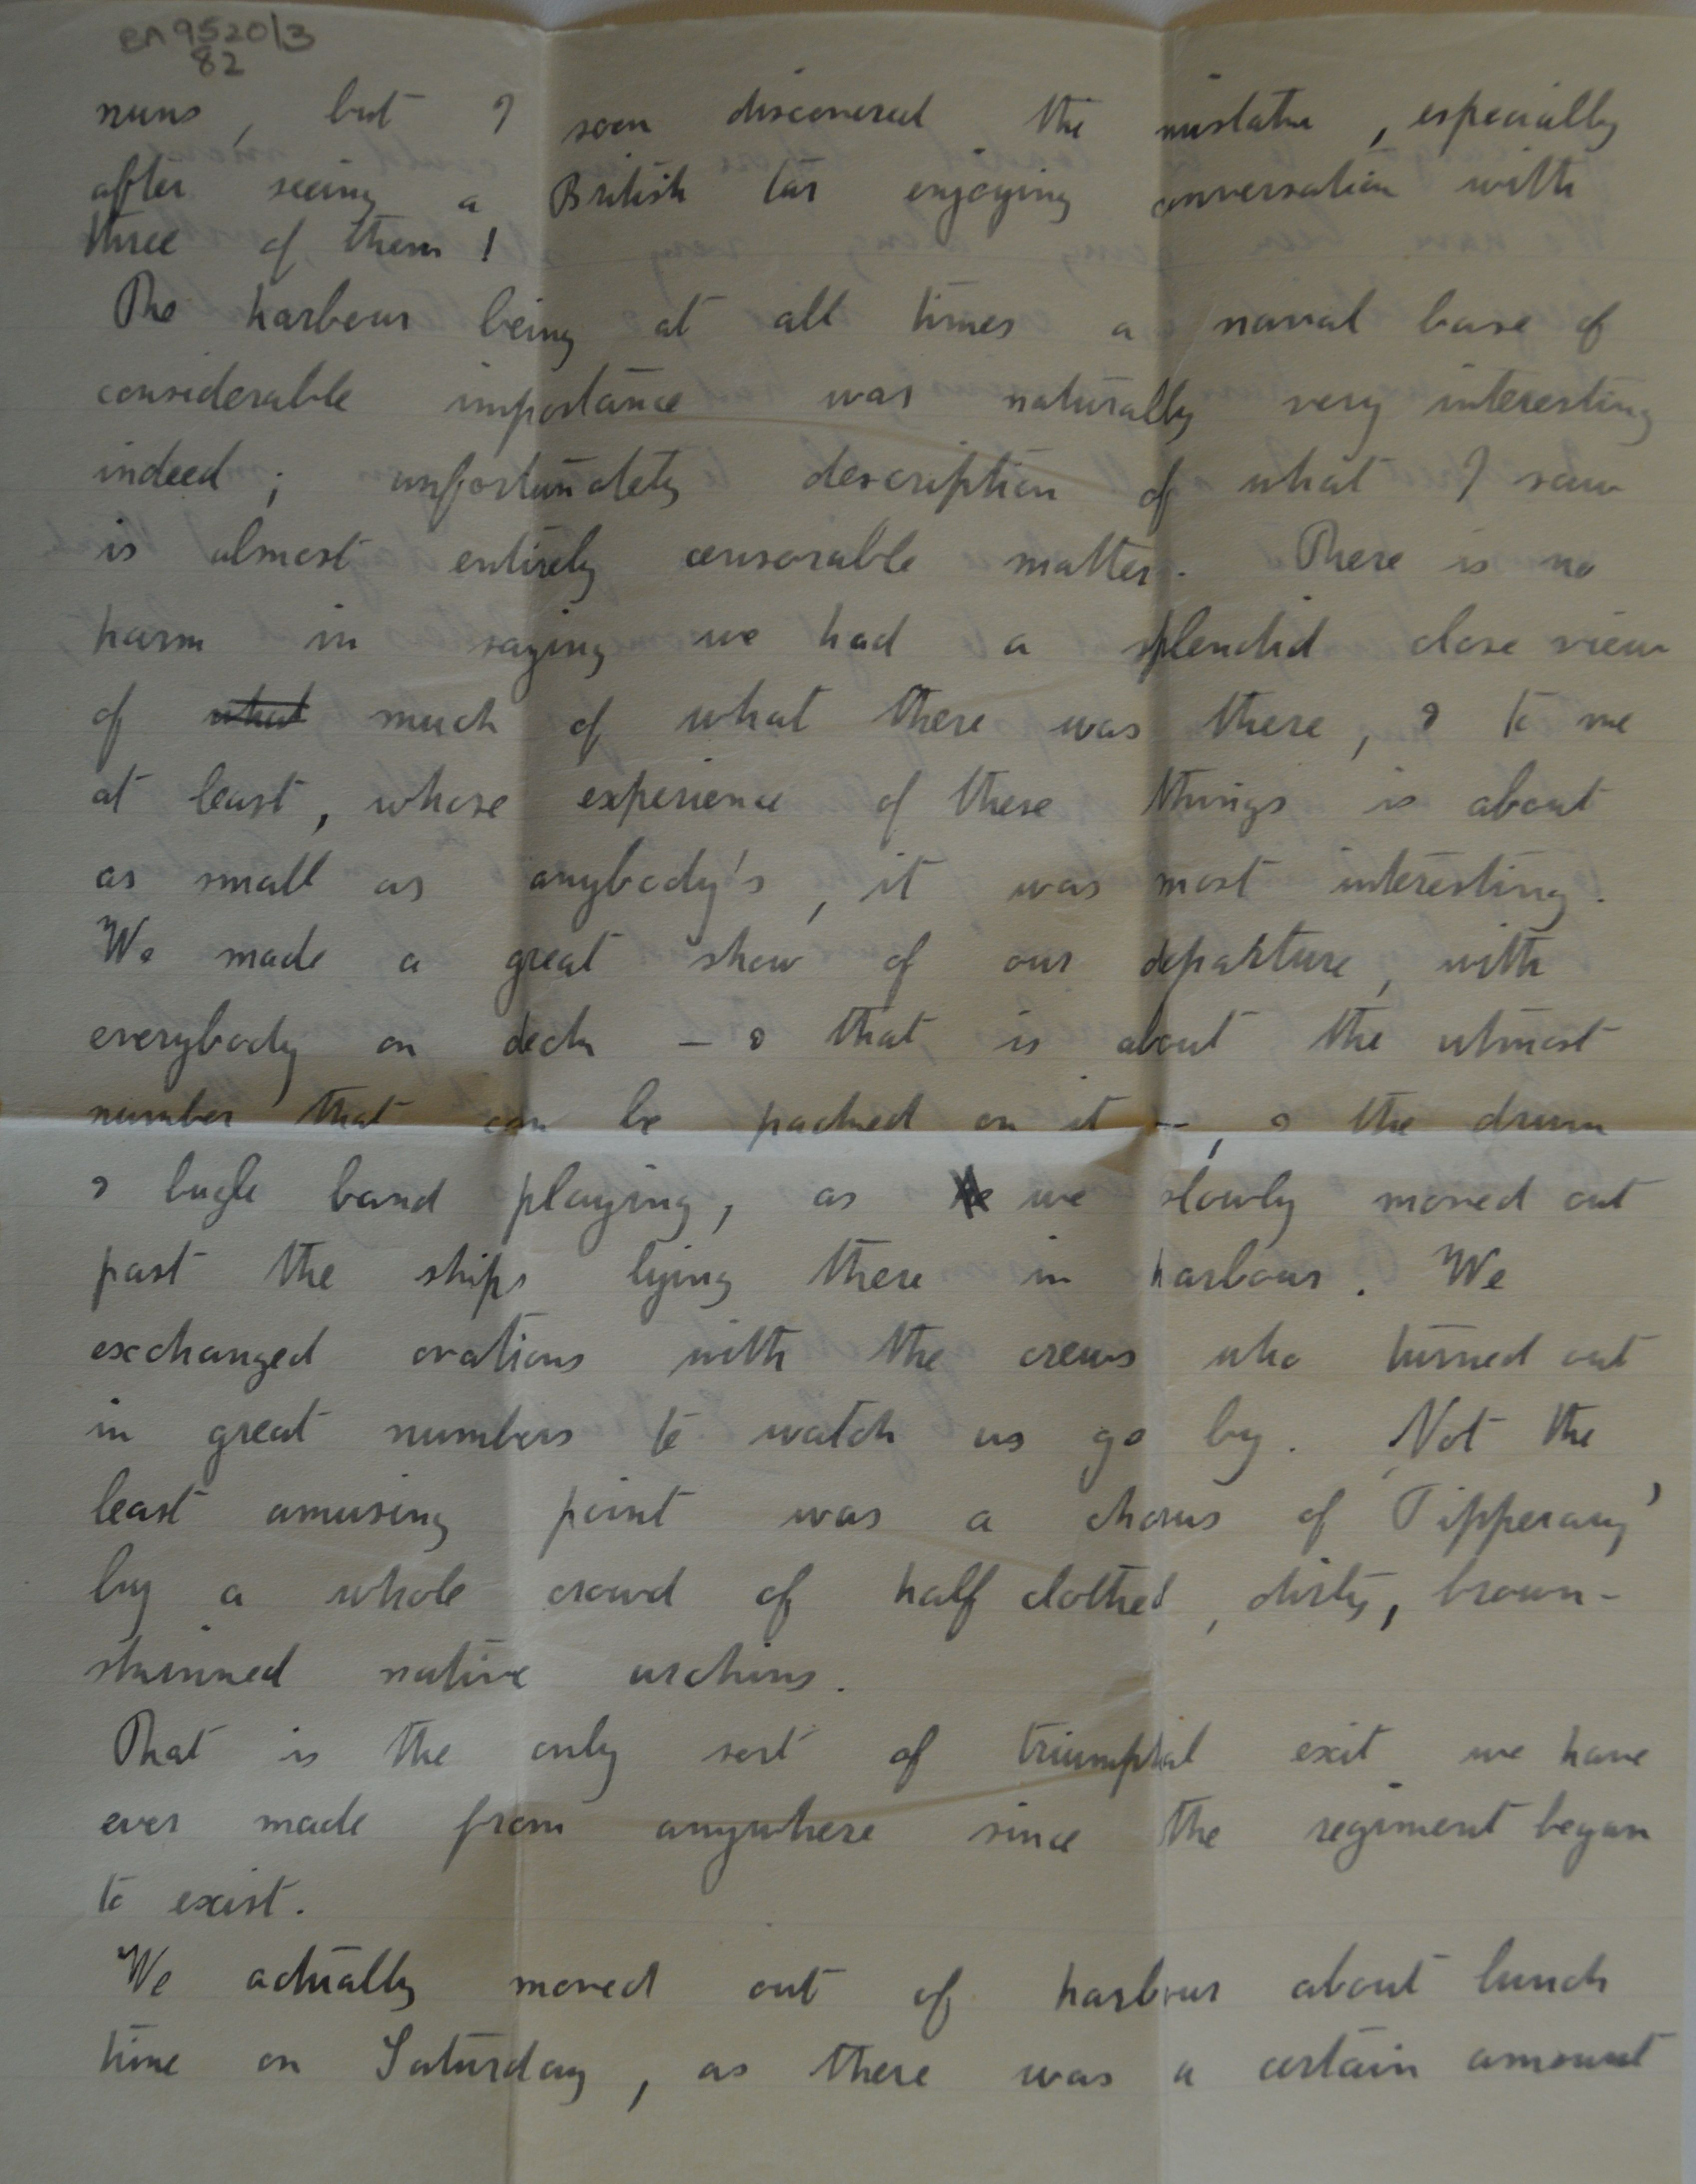 EA 9520/3
82
nuns, but I soon discovered the mistake, especially
after seeing a British tar enjoying conversation with
three of them!
The harbour being at all times a naval base of
considerable importance was naturally very interesting
indeed; unfortunately description of what I saw
is almost entirely censorable matter. There is no
harm in saying we had a splendid close view
of what much of what there was there, & to me
at least, whose experience of these things is about
as small as anybody's, it was most interesting.
We made a great show of our departure, with
everybody on deck – & that is about the utmost
number that can be packed on it –, & the drum
& bugle band playing, as we slowly moved out
past the ships lying there in harbour. We
exchanged ovations with the crews who turned out
in great numbers to watch us go by. Not the
least amusing point was a chorus of 'Tipperary'
by a whole crowd of half clothed, dirty, brown-
skinned native urchins.
That is the only sort of triumphal exit we have
ever made from anywhere since the regiment began
to exist.
We actually moved out of harbour about lunch
time on Saturday, as there was a certain amount